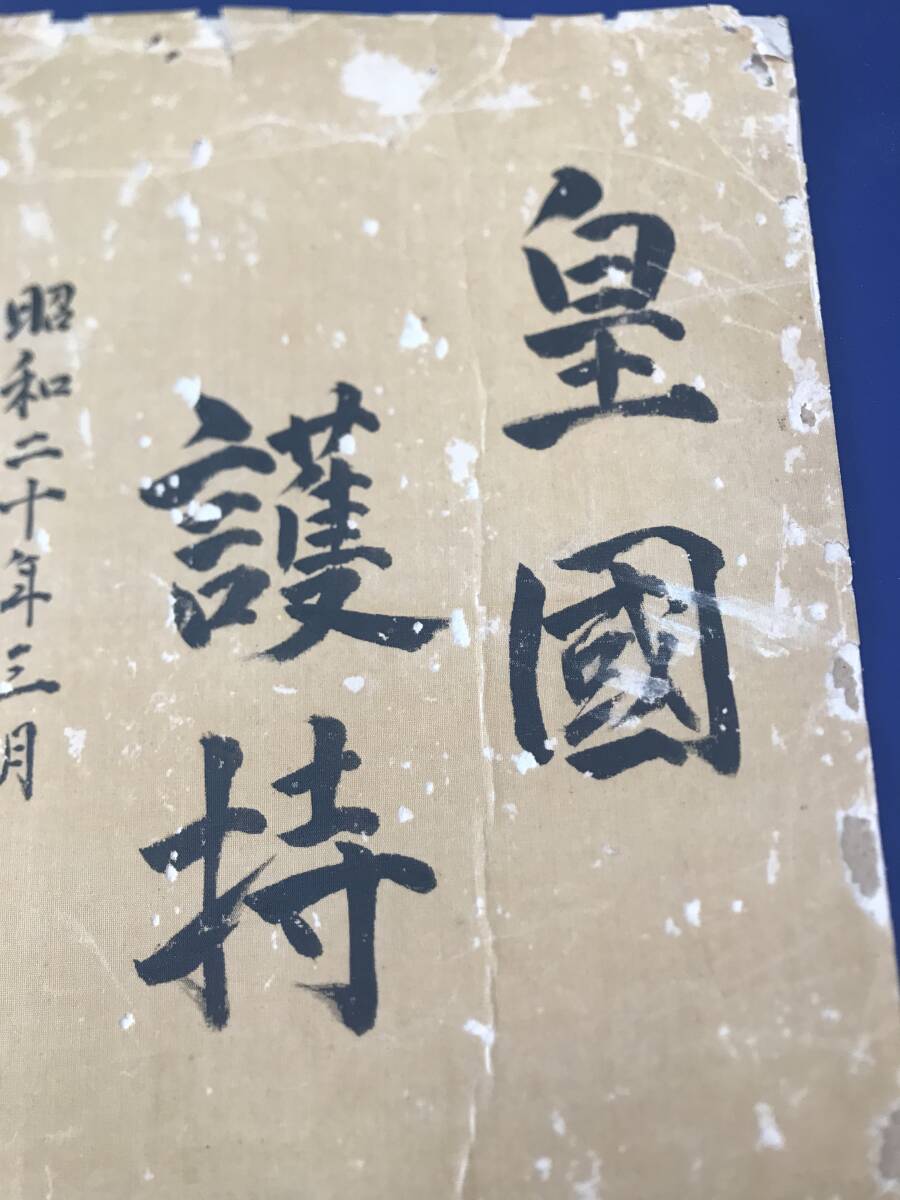 皇國
護持
昭和二十年三月